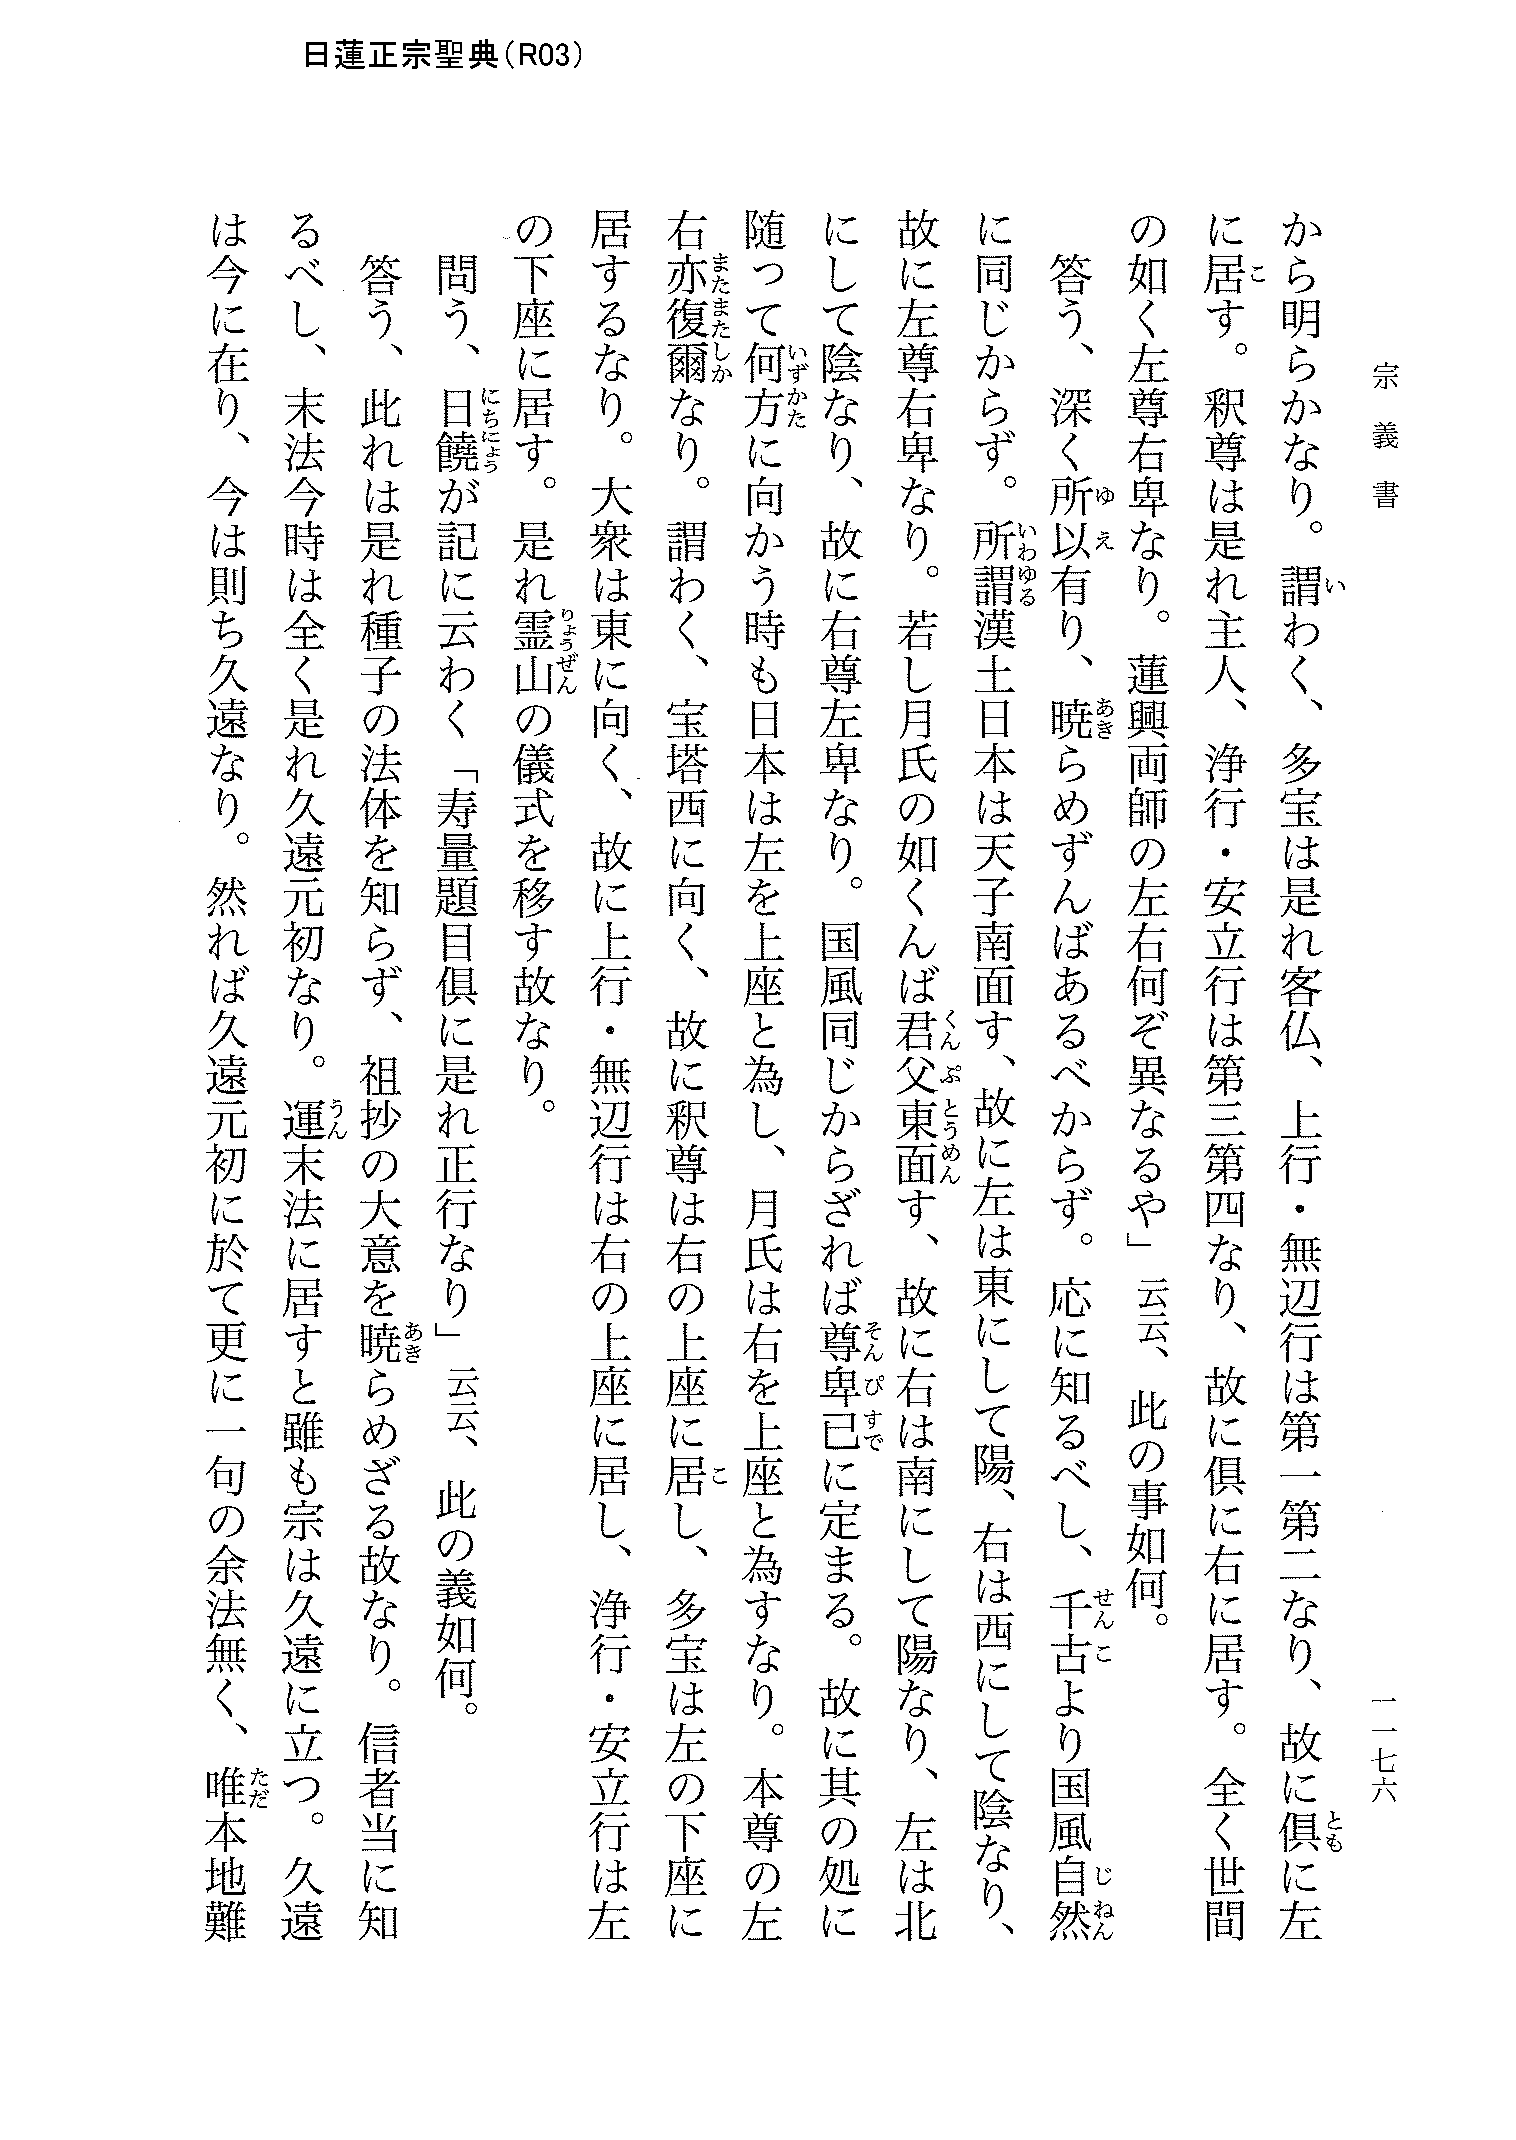 日蓮正宗聖典(R03)
宗義書
一一七六
から明らかなり。謂わく、多宝は是れ客仏、上行・無辺行は第一第二なり、故に倶に左
に居す。釈尊は是れ主人、浄行・安立行は第三第四なり、故に倶に右に居す。全く世間
の如く左尊右卑なり。蓮興両師の左右何ぞ異なるや」云云、此の事如何。
答う、深く所以有り、暁らめずんばあるべからず。応に知るべし、千古より国風自然
に同じからず。所謂漢土日本は天子南面す、故に左は東にして陽、右は西にして陰なり、
故に左尊右卑なり。若し月氏の如くんば君父東面す、故に右は南にして陽なり、左は北
にして陰なり、故に右尊左卑なり。国風同じからざれば尊卑已に定まる。故に其の処に
随って何方に向かう時も日本は左を上座と為し、月氏は右を上座と為すなり。本尊の左
右亦復爾なり。謂わく、宝塔西に向く、故に釈尊は右の上座に居し、多宝は左の下座に
居するなり。大衆は東に向く、故に上行・無辺行は右の上座に居し、浄行・安立行は左
の下座に居す。是れ霊山の儀式を移す故なり。
問う、日饒が記に云わく「寿量題目倶に是れ正行なり」云云、此の義如何。
答う、此れは是れ種子の法体を知らず、祖抄の大意を暁らめざる故なり。信者当に知
るべし、末法今時は全く是れ久遠元初なり。運末法に居すと雖も宗は久遠に立つ。久遠
は今に在り、今は則ち久遠なり。然れば久遠元初に於て更に一句の余法無く、唯本地難